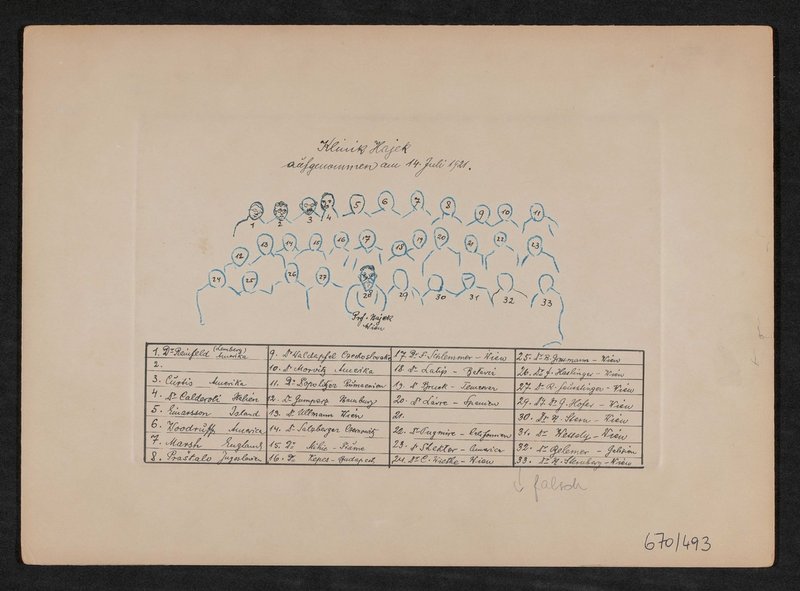 Klinik Hajek
aufgenommen am 14. Juli 1921.
1 2 3 4 5 6 7 8 9 10 11
12 13 14 15 16 17 18 19 20 21 22 23
24 25 26 27 28 29 30 31 32 33
Prof. Hajek
Wien
1. Dr Reinfeld (Lemberg) Amerika
2.
3. Curtis Amerika
4. Dr Calderoli Italien
5. Einarsson Island
6. Woodruff America
7. Marsh England
8. Praštalo Jugoslavien
9. Dr Waldapfel
10. Dr Morvitz Amerika
11. Dr Rumaenien
12. Dr Gomperz
13. Dr Ultmann Wien
14. Dr Salzberger Czernowitz
15. Dr
16. Dr Kepes - Budapest
17. Dr S. Schlemmer - Wien
18. Dr
19. Dr Bruck -
20. Dr - Spanien
21.
22. Dr - Californien
23. Dr - America
24. Dr C. Wiethe - Wien
25. Dr B. - Wien
26. Dr J. Haslinger - Wien
27. Dr R. - Wien
29. Dr G. Hofer - Wien
30. Dr H. Stern - Wien
31. Dr Wessely - Wien
32. Dr - Galizien
33. Dr H. Sternberg - Wien
↓ falsch
670/493